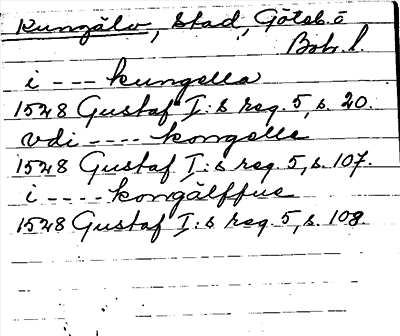 Kungälv, Stad, Göteb. o
Boh. l.
i --- kungella
1528 Gustaf I:s reg. 5, s. 20.
vdi ---- kongelle
1528 Gustaf I:s reg. 5, s. 107.
i ---- kongälffue
1528 Gustaf I:s reg. 5, s. 108.